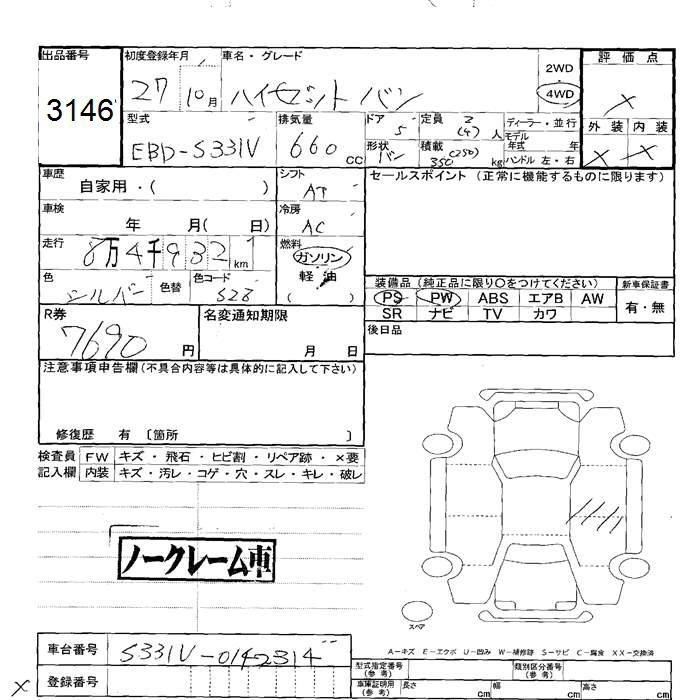 出品番号
3146
初度登録年月 車名・グレード
27 10月 ハイゼット バン
2WD
4WD
評価点
×
外装 内装
× ×
型式 排気量 ドア 定員 ディーラー・並行
EBD-S331V 660 CC 5 2 (4) 人
モデル年式 年
形状 積載 ハンドル 左・右
バン 350 (250) kg
車歴 シフト セールスポイント (正常に機能するものに限ります)
自家用・( ) AT
車検 冷房
年 月( 日) AC
走行 燃料
8万4千932 km ガソリン
軽・油
( )
色 色替 色コード
シルバー S28
装備品(純正品に限り○をつけてください) 新車保証書
PS PW ABS エアB AW 有・無
SR ナビ TV カワ
R券 名変通知期限 後日品
7690 円 月 日
注意事項申告欄(不具合内容等は具体的に記入して下さい)
修復歴 有 〔箇所 〕
検査員 FW キズ・飛石・ヒビ割・リペア跡・×要
記入欄 内装 キズ・汚レ・コゲ・穴・スレ・キレ・破レ
ノークレーム車
スペア
A-キズ E-エクボ U-凹み W-補修跡 S-サビ C-腐食 XX-交換済
車台番号 S331V-0142314
登録番号
×
型式指定番号(参考) 類別区分番号(参考)
車庫証明用(参考) 長さ cm 幅 cm 高さ cm